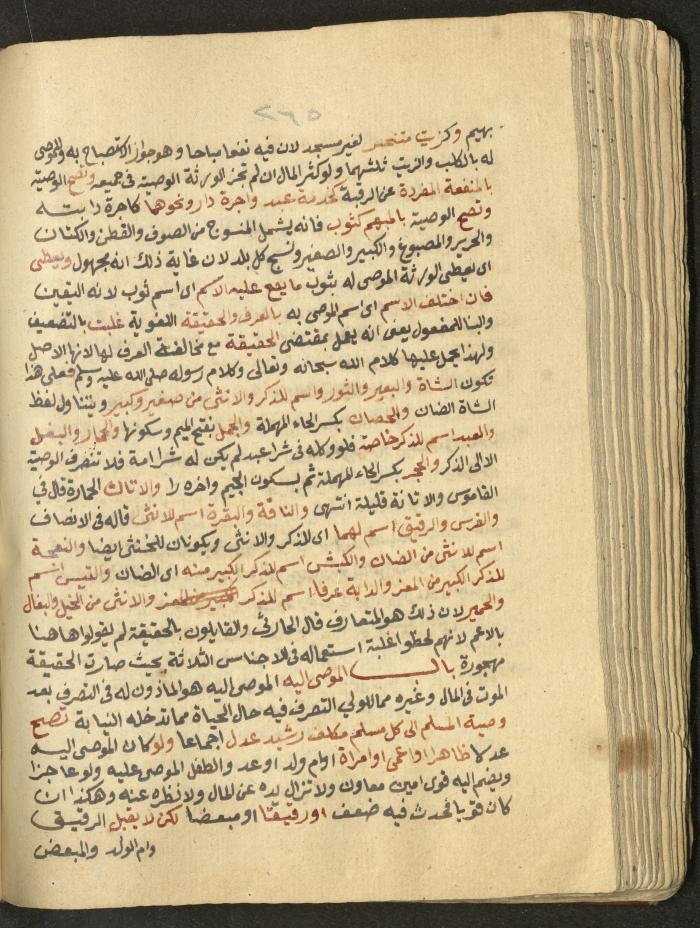 ٢٦٥
بهيم وكزيت متنجس لغير مسجد لان فيه نفعا مباحا وهو جواز الاستصباح به وللموصى
له بالكلب والزيت ثلثهما ولو كثر المال ان لم تجز الورثة الوصية في جميعه وتصح الوصية
بالمنفعة المفردة عن الرقبة كخدمة عبد واجرة دار ونحوهما كاجرة دابته
وتصح الوصية بالمبهم كثوب فانه يشمل المنسوج من الصوف والقطن والكتان
والحرير والمصبوغ والكبير والصغير ونسج كل بلد لان غاية ذلك انه مجهول ويعطى
اى يعطي الورثة الموصى له بثوب ما يقع عليه الاسم اى اسم ثوب لانه اليقين
فان اختلف الاسم اى اسم الموصى به بالعرف والحقيقة اللغوية غلبت بالتضعيف
والبنا للمفعول يعنى انه يعمل بمقتضى الحقيقة مع مخالفة العرف لها لانها الاصل
ولهذا يحمل عليها كلام الله سبحانه وتعالى وكلام رسوله صلى الله عليه وسلم فعلى هذا
تكون الشاة والبعير والثور اسم للذكر والانثى من صغير وكبير ويتناول لفظ
الشاة الضان والحصان بكسر الحاء المهملة والجمل بفتح الميم وسكونها والحمار والبغل
والعبد اسم للذكر خاصة فلو وكله فى شرا عبد لم يكن له شرا امة فلا تنصرف الوصية
الا الى الذكر والحجر بكسر الحاء المهملة ثم بسكون الجيم واخره را والاتان الحمارة قال في
القاموس والاتانة قليلة انتهى والناقة والبقرة اسم للانثى قاله فى الانصاف
والفرس والرقيق اسم لهما اى للذكر والانثى ويكونان للخنثى ايضا والنعجة
اسم للانثى من الضان والكبش اسم للذكر الكبير منه اى الضان والتيس اسم
للذكر الكبير من المعز والدابة عرفا اسم للذكر والانثى من الخيل والبغال
والحمير لان ذلك هو المتعارف قال الحارثي والقايلون بالحقيقة لم يقولوا هاهنا
بالاعم لانهم لحظوا غلبة استعماله فى الاجناس الثلاثة بحيث صارت الحقيقة
مهجورة باب الموصى اليه الموصى اليه هو الماذون له فى التصرف بعد
الموت فى المال وغيره مما للولي التصرف فيه حال الحياة مما تدخله النيابة تصح
وصية المسلم الى كل مسلم مكلف رشيد عدل اجماعا ولو كان الموصى اليه
عدلا ظاهرا او اعمى او امراة او ام ولد او عد والطفل الموصى عليه ولو عاجزا
ويضم اليه قوى امين معاون ولا تزال يده عن المال ولا نظره عنه وهكذا ان
كان قويا فحدث فيه ضعف او رقيقا او مبعضا لكن لا يقبل الرقيق
وام الولد والمبعض